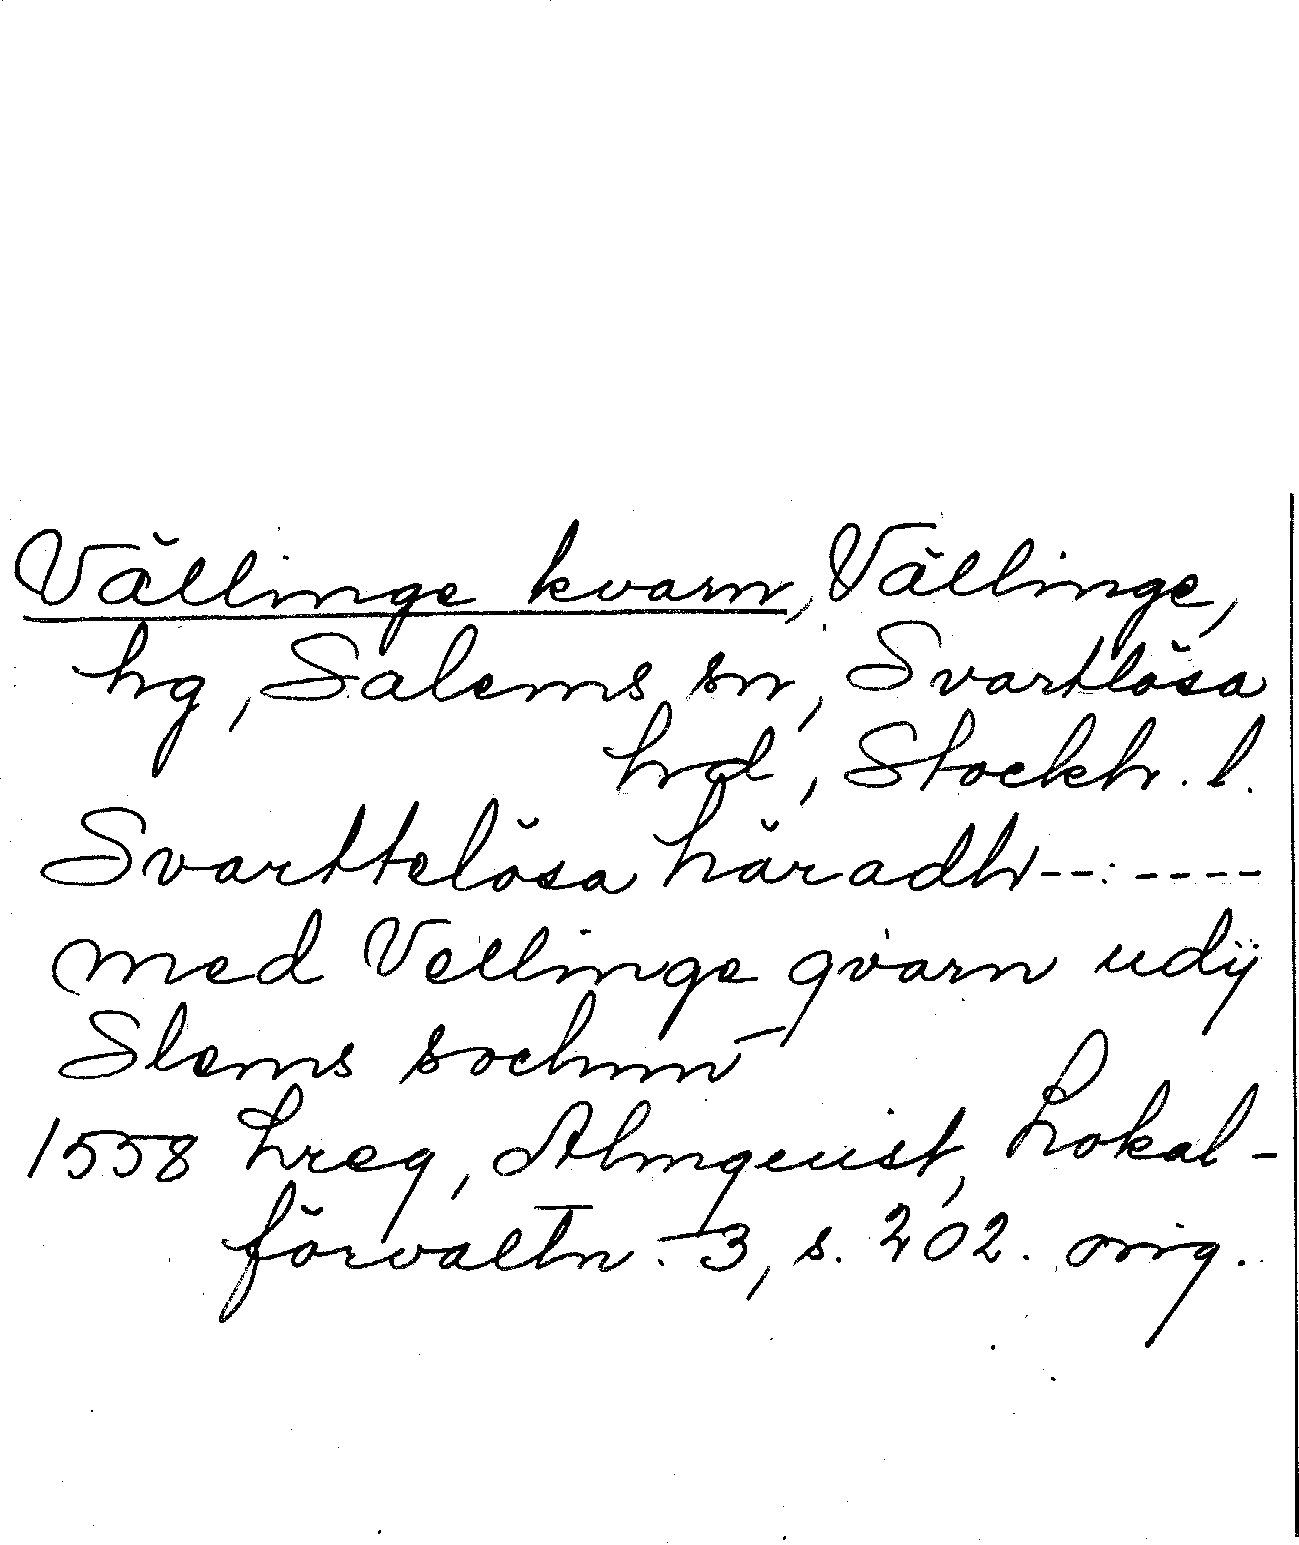 Vällinge kvarn, Vällinge,
hg, Salems sn, Svartlösa
hd, Stockh. l.
Svarttelösa häradh -- ----
med Vellinge qvarn udij
Slems sochnn
1558 hreg, Almquist, Lokal-
förvaltn. 3, s. 202. orig.